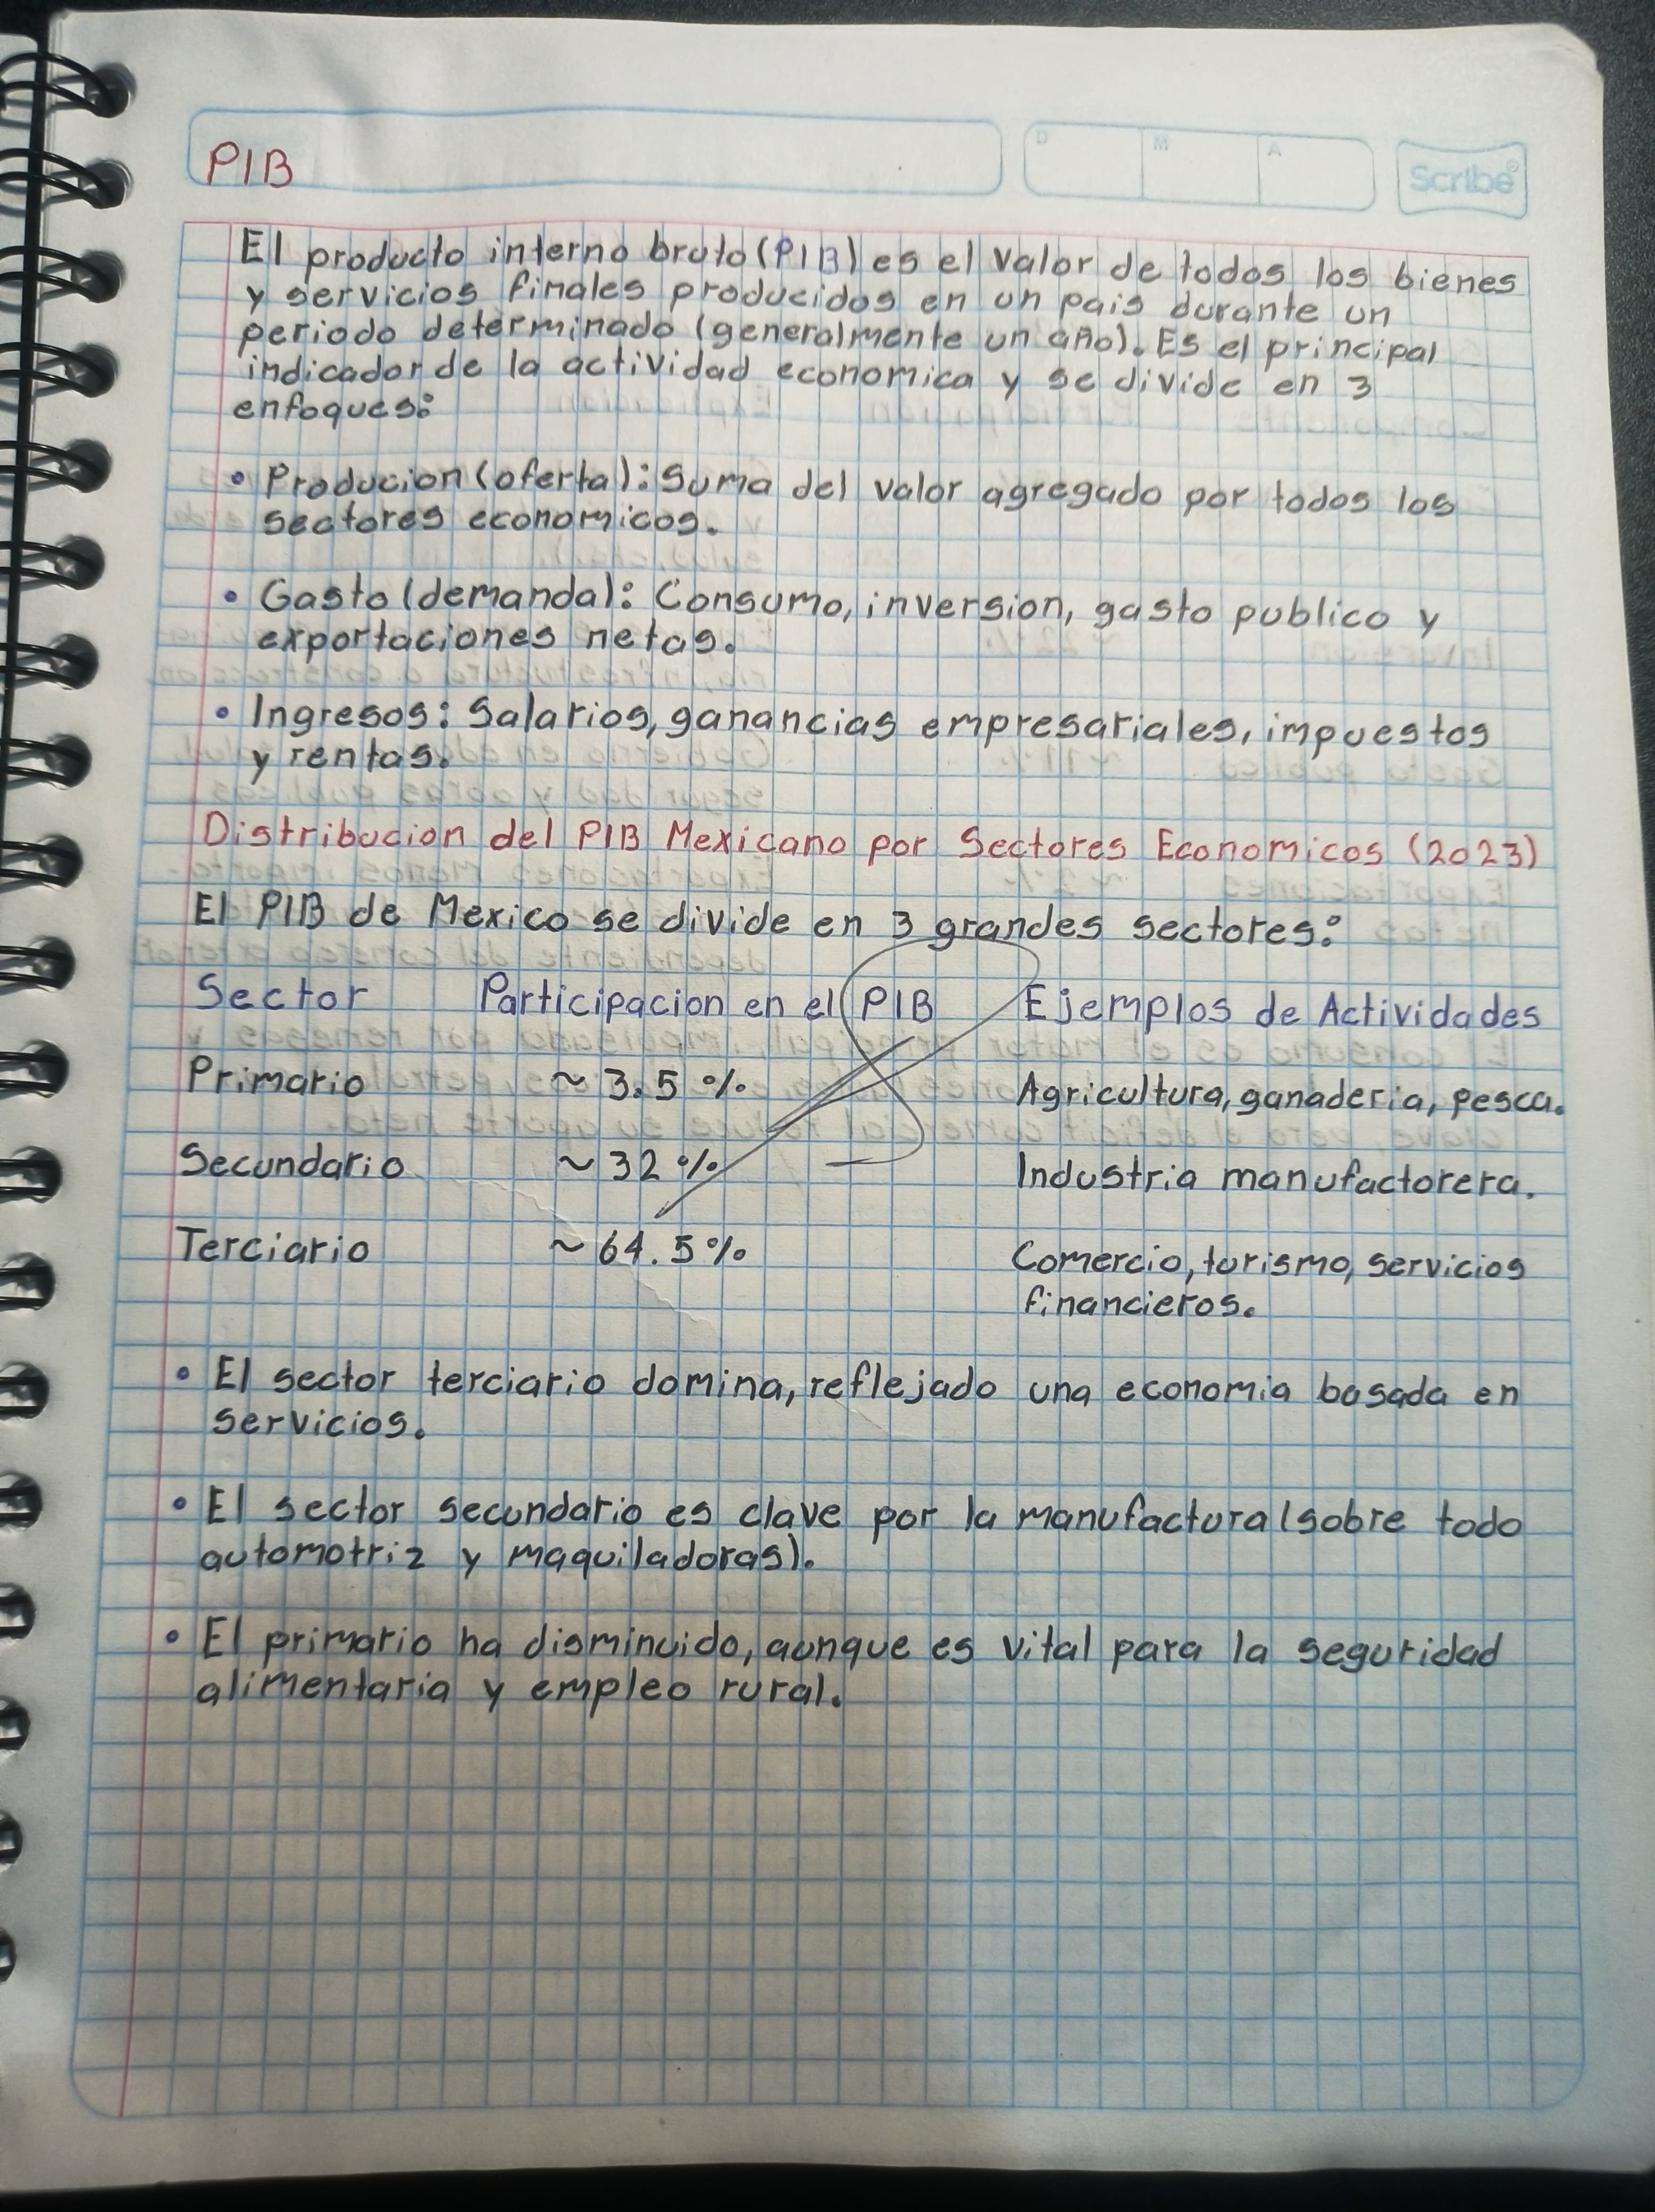 PIB
D M A
Scribe®
El producto interno bruto (PIB) es el valor de todos los bienes
y servicios finales producidos en un pais durante un
periodo determinado (generalmente un año). Es el principal
indicador de la actividad economica y se divide en 3
enfoques:
• Producion (oferta): Suma del valor agregado por todos los
sectores economicos.
• Gasto (demanda): Consumo, inversion, gasto publico y
exportaciones netas.
• Ingresos: Salarios, ganancias empresariales, impuestos
y rentas.
Distribucion del PIB Mexicano por Sectores Economicos (2023)
El PIB de Mexico se divide en 3 grandes sectores:
Sector Participacion en el PIB Ejemplos de Actividades
Primario ~ 3.5 % Agricultura, ganaderia, pesca.
Secundario ~ 32 % Industria manufactorera.
Terciario ~ 64.5 % Comercio, turismo, servicios
financieros.
• El sector terciario domina, reflejado una economia basada en
servicios.
• El sector secundario es clave por la manufactura (sobre todo
automotriz y maquiladoras).
• El primario ha disminuido, aunque es vital para la seguridad
alimentaria y empleo rural.